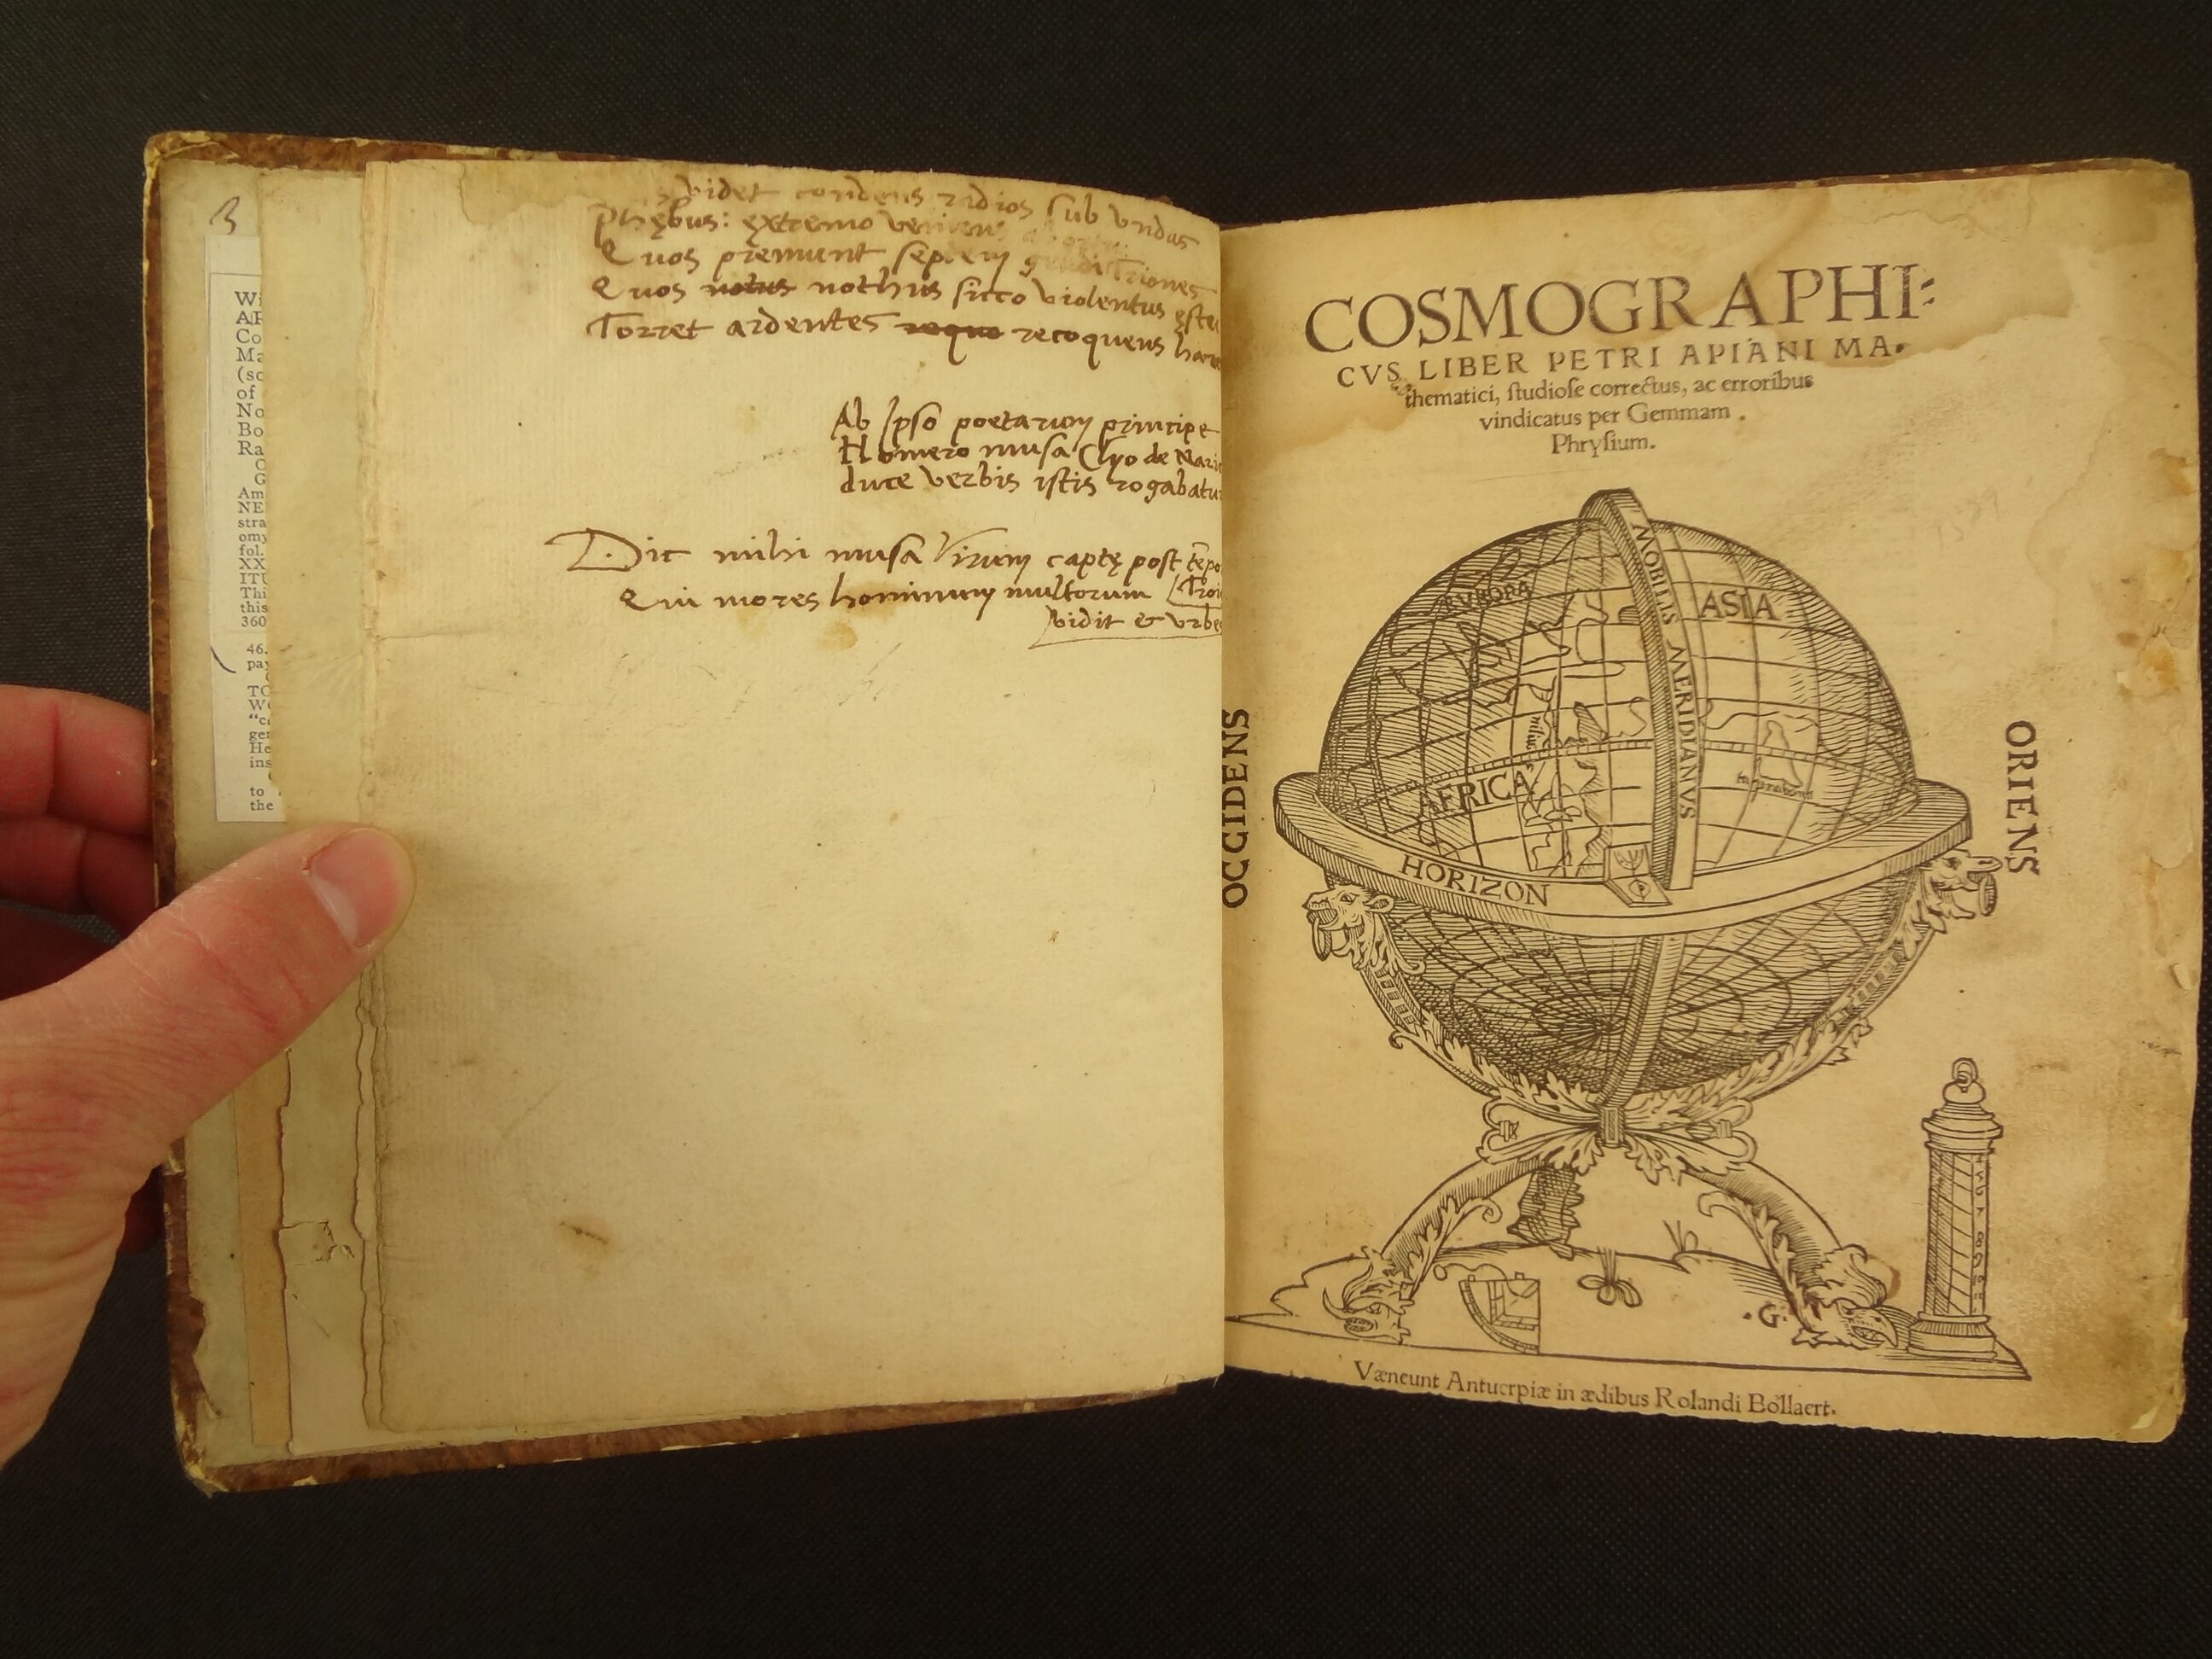 3
Wi
AP
Co
Ma
(sc
of
No
Bo
Ra
O
G
Am
NE
stra
omy
fol.
XX
ITU
Thi
this
360
46.
pay
TO
We
“ca
ger
He
ins
to
the
videt condens radios sub vndas
Phębus: ęxtremo veniens ab ortu
Quos premunt septem gelidi Triones
Quos notus nothus sicco violentus ęstu
Torret ardentes requo recoquens
Ab Ipso poetarum principe
Homero musa Clyo de
duce verbis istis rogabatur
Dic mihi musa Virum captę post
Qui mores hominum multorum
vidit & vrbes
COSMOGRAPHI:
CVS LIBER PETRI APIANI MA.
thematici, ſtudioſe correctus, ac erroribus
vindicatus per Gemmam .
Phryſium.
EVROPA
MOBILIS MERIDIANVS
ASIA
OCCIDENS
ORIENS
AFRICA
HORIZON
.G.
Væneunt Antuerpiæ in ædibus Rolandi Bollaert.